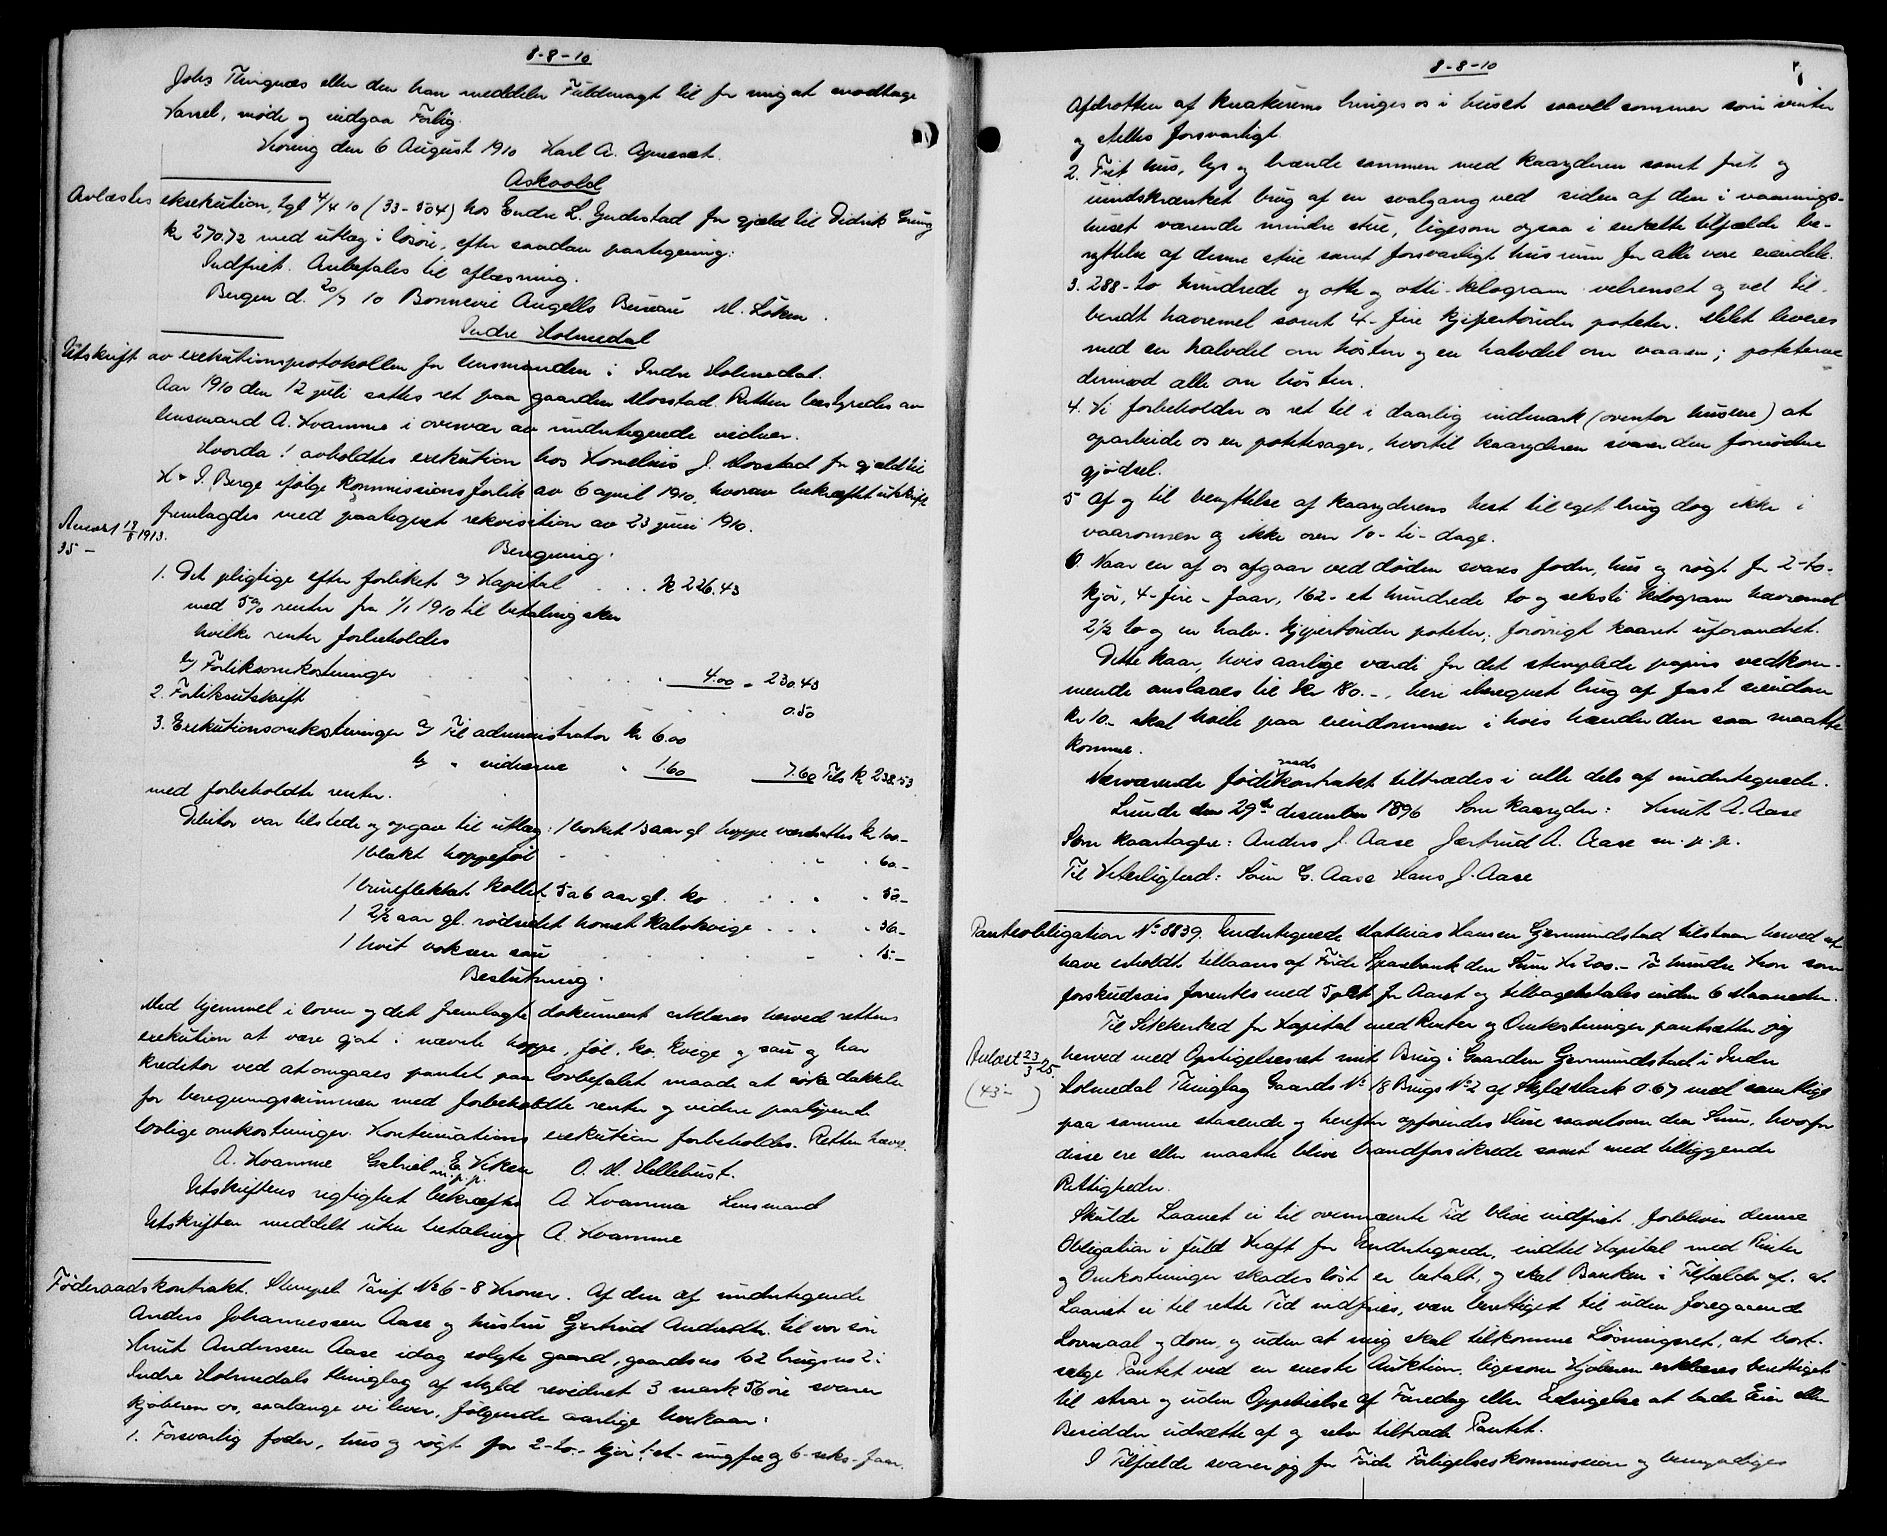 8-8-10
Johs Thingnæs eller den han meddeler Fuldmagt til for mig at modtage
Varsel, møde og indgaa Forlig.
den 6 August 1910 Karl A.
Askvold
Avlæstes eksekution, tgl 4/4 10 (33-504) hos Endre L. Gjelestad for gjæld til Didrik Grung
kr 270.72 med utlæg i løsøre, efter saadan paategning:
Indfriet. Anbefales til aflæsning.
Bergen d. 20/7 10 Bonnevie Angells Bureau M. Løken.
Indre Holmedal
Utskrift av exekutionsprotokollen for lensmanden i Indre Holmedal.
Aar 1910 den 12 juli sattes ret paa gaarden Mosstad. Retten bestyredes av
lensmand A. Kvamme i overvær av undertegnede vidner.
Hvorda! avholdtes exekution hos Kornelius J. Mosstad for gjæld til
K & I. Berge ifølge Kommissionsforlik av 6 april 1910, hvorav bekræftet utskrift
fremlagdes med paategnet rekvisition av 23 juni 1910.
1913.
35-
Beregning.
1. Det pligtige efter forliket a) Kapital . . . kr 226.43
med 5% renter fra 1/1 1910 til betaling sker
hvilke renter forbeholdes
b) Forliksomkostninger . . . 4.00 - 230.43
2. Forliksutskrift . . . 0.50
3. Exekutionsomkostninger a) Til administrator kr 6.00
b) " vidnerne " 1.60 7.60 Tils kr 238.53
med forbeholdte renter.
Debitor var tilstede og opgav til utlæg: 1 borket 13 aar gl hoppe værdsattes kr 100-
1 blakt hoppeføl . . . 60-
1 bruneflekket kollet 5 a 6 aar gl. ko . . . 50-
1 2½ aar gl. rødsidet hornet kalvkvige . . . 36-
1 hvit voksen sau . . . 15-
Beslutning.
Med hjemmel i loven og det fremlagte dokument erklæres herved rettens
exekution at være gjort i nævnte hoppe, føl, ko, kvige og sau og har
kreditor ved at omgaaes pantet paa lovbefalet maade at søke dækkelse
for beregningssummen med forbeholdte renter og videre paaløpende
lovlige omkostninger. Kontinuations exekution forbeholdes. Retten hævet.
A. Kvamme Gabriel E. Viken O. M. Hellebust.
m. p. p.
Utskriftens rigtighet bekræftes A Kvamme Lensmand
Utskriften meddelt uten betaling A. Kvamme
Føderaadskontrakt. Stempel Tarif No 6 - 8 Kroner. Af den af undertegnede
Anders Johannessen Aase og hustru Gjertrud Andersdtr. til vor søn
Knut Anderssen Aase idag solgte gaard, gaardsno 62 brugsno 2 i
Indre Holmedals thinglag af skyld revideret 3 mark 56 øre svarer
kjøberen os, saalænge vi lever, følgende aarlige livskaar:
1. Forsvarlig foder, hus og røgt for 2-to- kjør, 1-et- ungfæ og 6-seks-faar.
8-8-10
Afdrotten af kreaturerne bringes os i huset saavel sommer som vinter
og stelles forsvarligt.
2. Frit hus, lys og brænde sammen med kaaryderen samt frit og
uindskrænket brug af en svalgang ved siden af den i vaanings-
huset værende mindre stue, ligesom ogsaa i enkelte tilfælde be-
nyttelse af denne stue samt forsvarligt husrum for alle vore eiendele.
3. 288- to hundrede og otte og otti- kilogram velrenset og vel til-
bundt havremel samt 4- fire kjipertønder poteter. Melet leveres
med en halvdel om høsten og en halvdel om vaaren; poteterne
derimod alle om høsten.
4. Vi forbeholder os ret til i daarlig indmark (ovenfor husene) at
oparbeide os en potetesager, hvortil kaaryderen svarer den fornødne
gjødsel.
5 Af og til benyttelse af kaaryderens hest til eget brug dog ikke i
vaaronnen og ikke over 10-ti-dage.
6 Naar en af os afgaar ved døden svares foder, hus og røgt for 2-to-
kjør, 4-fire-faar, 162- et hundrede to og seksti kilogram havremel
2½ to og en halv- kjipertønder poteter; forøvrigt kaaret uforandret.
Dette kaar, hvis aarlige værdi for det stemplede papirs vedkom-
mende anslaaes til kr 80.-, heri iberegnet brug af fast eiendom
kr 10.- skal hvile paa eiendommen i hvis hænder den saa maatte
komme.
Nærværende føderaadskontrakt tiltrædes i alle dele af undertegnede.
Lunde den 29de desember 1896 Som kaaryder: Knut A. Aase
Som kaartagere: Anders J. Aase Gjertrud A. Aase m. p. p.
Til Vitterlighed: Søren G. Aase Hans J. Aase
Panteobligation No 8839. Undertegnede Mathias Hansen Gjermundstad tilstaar herved at
have erholdt tillaans af Førde Sparebank den Sum Kr 200.- To hundre Kron som
forskudsvis forrentes med 5 pct for Aaret og tilbagebetales inden 6 Maaneder.
Til Sikkerhed for Kapital med Renter og Omkostninger pantsætter jeg
Avlæst 23/3 25.
(43- )
herved med Oprigelsesret mit Brug i Gaarden Gjermundstad i Indre
Holmedal Thinglag Gaards No 18 Brugs No 2 af Skyld Mark 0.67 med samtlige
paa samme staaende og herefter opførendes Huse saavelsom den Sum, hvorfor
disse ere eller maatte blive brandforsikrede samt med tilliggende
Rettigheder.
Skulde Laanet ei til ovennævnte Tid blive indfriet, forbliver denne
Obligation i fuld Kraft for Undertegnede, indtil Kapital med Renter
og Omkostninger skadesløst er betalt, og skal Banken i Tilfælde af, at
Laanet ei til rette Tid indfries, være berettiget til uden foregaaende
Lovmaal og dom, og uden at mig skal tilkomme Løsningsret, at bort-
sælge Pantet ved en eneste Auktion, ligesom Kjøberen erklæres berettiget
til strax og uden Oppebielse af Faredag eller Udsigelse at lade Eier eller
Besidder udsætte af og selv tiltræde Pantet.
I Tilfælde svarer jeg for Førde Forligelseskommission og bemyndiges